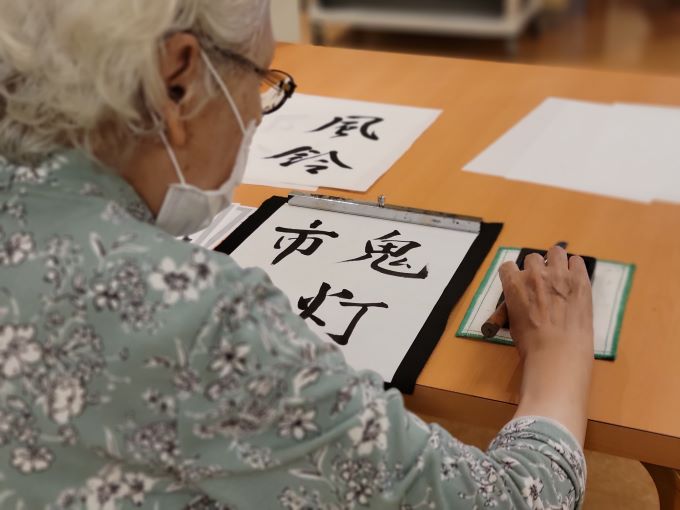 風鈴
鬼灯
市